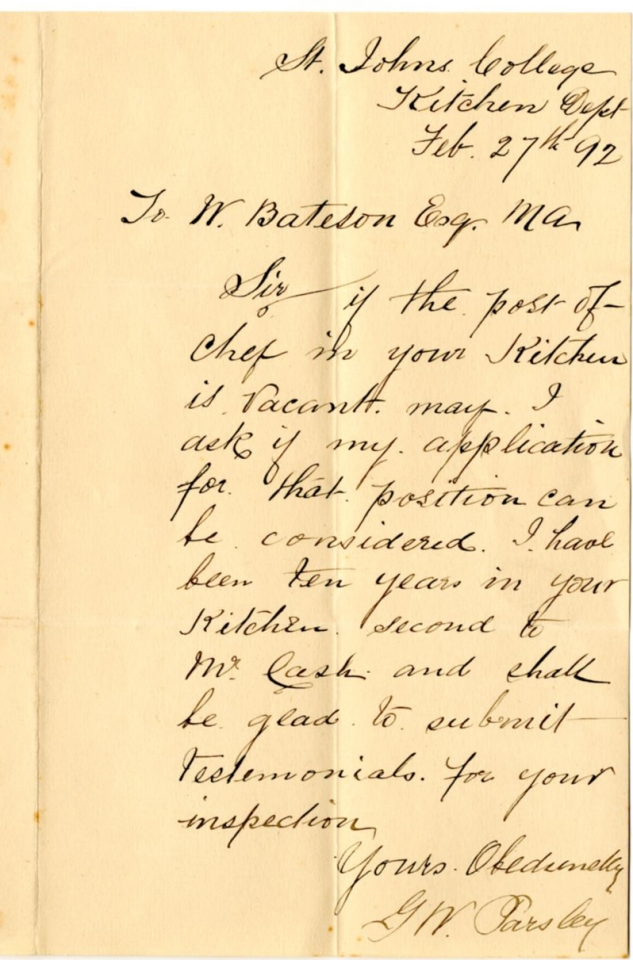 St. Johns College
Kitchen Dept
Feb. 27th 92
To W. Bateson Esq. MA
Sir if the post of
Chef in your Kitchen
is Vacant. may. I
ask if my. application
for. that. position can
be. considered. I. have
been ten years in your
Kitchen. second to
Mr. Cash. and shall
be glad. to. submit
Testemonials. for your
inspection
Yours. Obediently
G W. Parsley